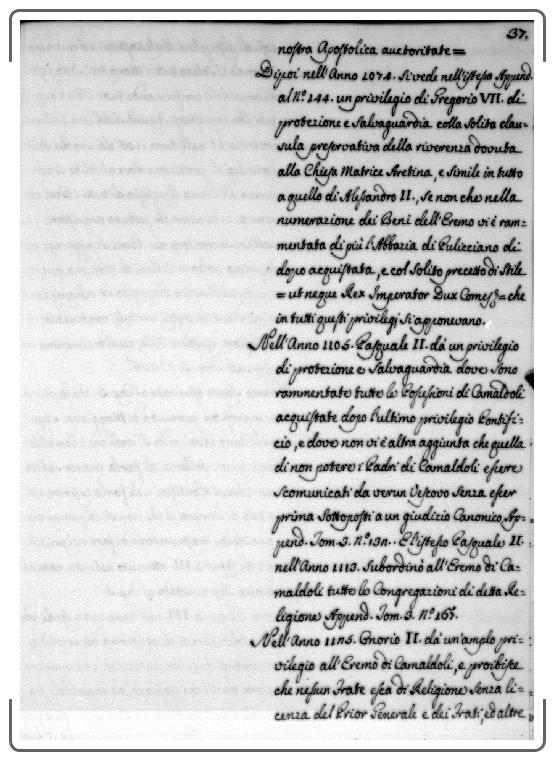 37.
nostra Apostolica auctoritate =
Dipoi nell'Anno 1074. si vede nell'istesso Append.
al N.º 144. un privilegio di Gregorio VII. di
protezione e Salvaguardia colla Solita clau=
sula preservativa della riverenza dovuta
alla Chiesa Matrice Aretina, e Simile in tutto
a quello di Alessandro II., se non che nella
numerazione dei Beni dell'Eremo vi è ram=
mentata di più l'Abbazia di Pulicciano di
dopo acquistata, e col Solito precetto di Stile
= ut neque Rex Imperator Dux Comes = che
in tutti questi privilegj si apponevano.
Nell'Anno 1105. Pasquale II. dà un privilegio
di protezione e Salvaguardia dove Sono
rammentate tutte le Possessioni di Camaldoli
acquistate dopo l'ultimo privilegio Pontifi=
cio, e dove non vi è altra aggiunta che quella
di non potere i Padri di Camaldoli essere
Scomunicati da verun Vescovo Senza esser
prima Sottoposti a un giudizio Canonico, Ap=
pend. Tom. 3. N.º 137.. L'istesso Pasquale II.
nell'Anno 1113. Subordinò all'Eremo di Ca=
maldoli tutte le Congregazioni di detta Re=
ligione Append. Tom. 3. N.º 165.
Nell'Anno 1125. Onorio II. dà un'amplo pri=
vilegio all'Eremo di Camaldoli, e proibisce
che nessun Frate esca di Religione Senza li=
cenza del Prior Generale e dei Frati, ed altre